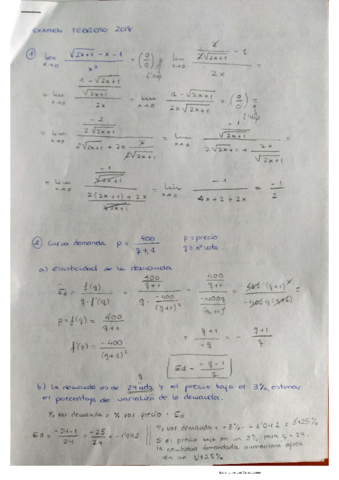 EXAMEN FEBRERO 2018
① lim x→0 (√(2x+1) - x - 1)/x² = (0/0) = lim x→0 (2/(2√(2x+1)) - 1)/2x
= lim x→0 ((1-√(2x+1))/√(2x+1))/2x = lim x→0 (1-√(2x+1))/(2x√(2x+1)) = (0/0)
= lim x→0 (-2/(2√(2x+1)))/(2√(2x+1) + 2x 2/(2√(2x+1))) = lim x→0 (-1/√(2x+1))/(2√(2x+1) + 2x/√(2x+1)) =
= lim x→0 (-1/√(2x+1))/((2(2x+1)+2x)/√(2x+1)) = lim x→0 -1/(4x+2+2x) = -1/2
② Curva demanda p = 400/(q+1) p = precio
q = nº uds
a) Elasticidad de la demanda
Ed = f(q)/(q·f'(q)) = (400/(q+1))/(q·(-400/(q+1)²)) = (400/(q+1))/(-400q/(q+1)²) =
p = f(q) = 400/(q+1) = (q+1)/-q = -(q+1)/q
f'(q) = -400/(q+1)²
Ed = (-q-1)/q
b) La demanda es de 24 uds y el precio baja el 3%, estimar
el porcentaje de variación de la demanda.
% var demanda = % var precio : Ed
Ed = (-24-1)/24 = -25/24 = -1'042
% var demanda = -3% · -1'042 = 3'125%
Si el precio baja en un 3%, para q = 24,
la cantidad demandada aumentará aprox
en un 3'125%